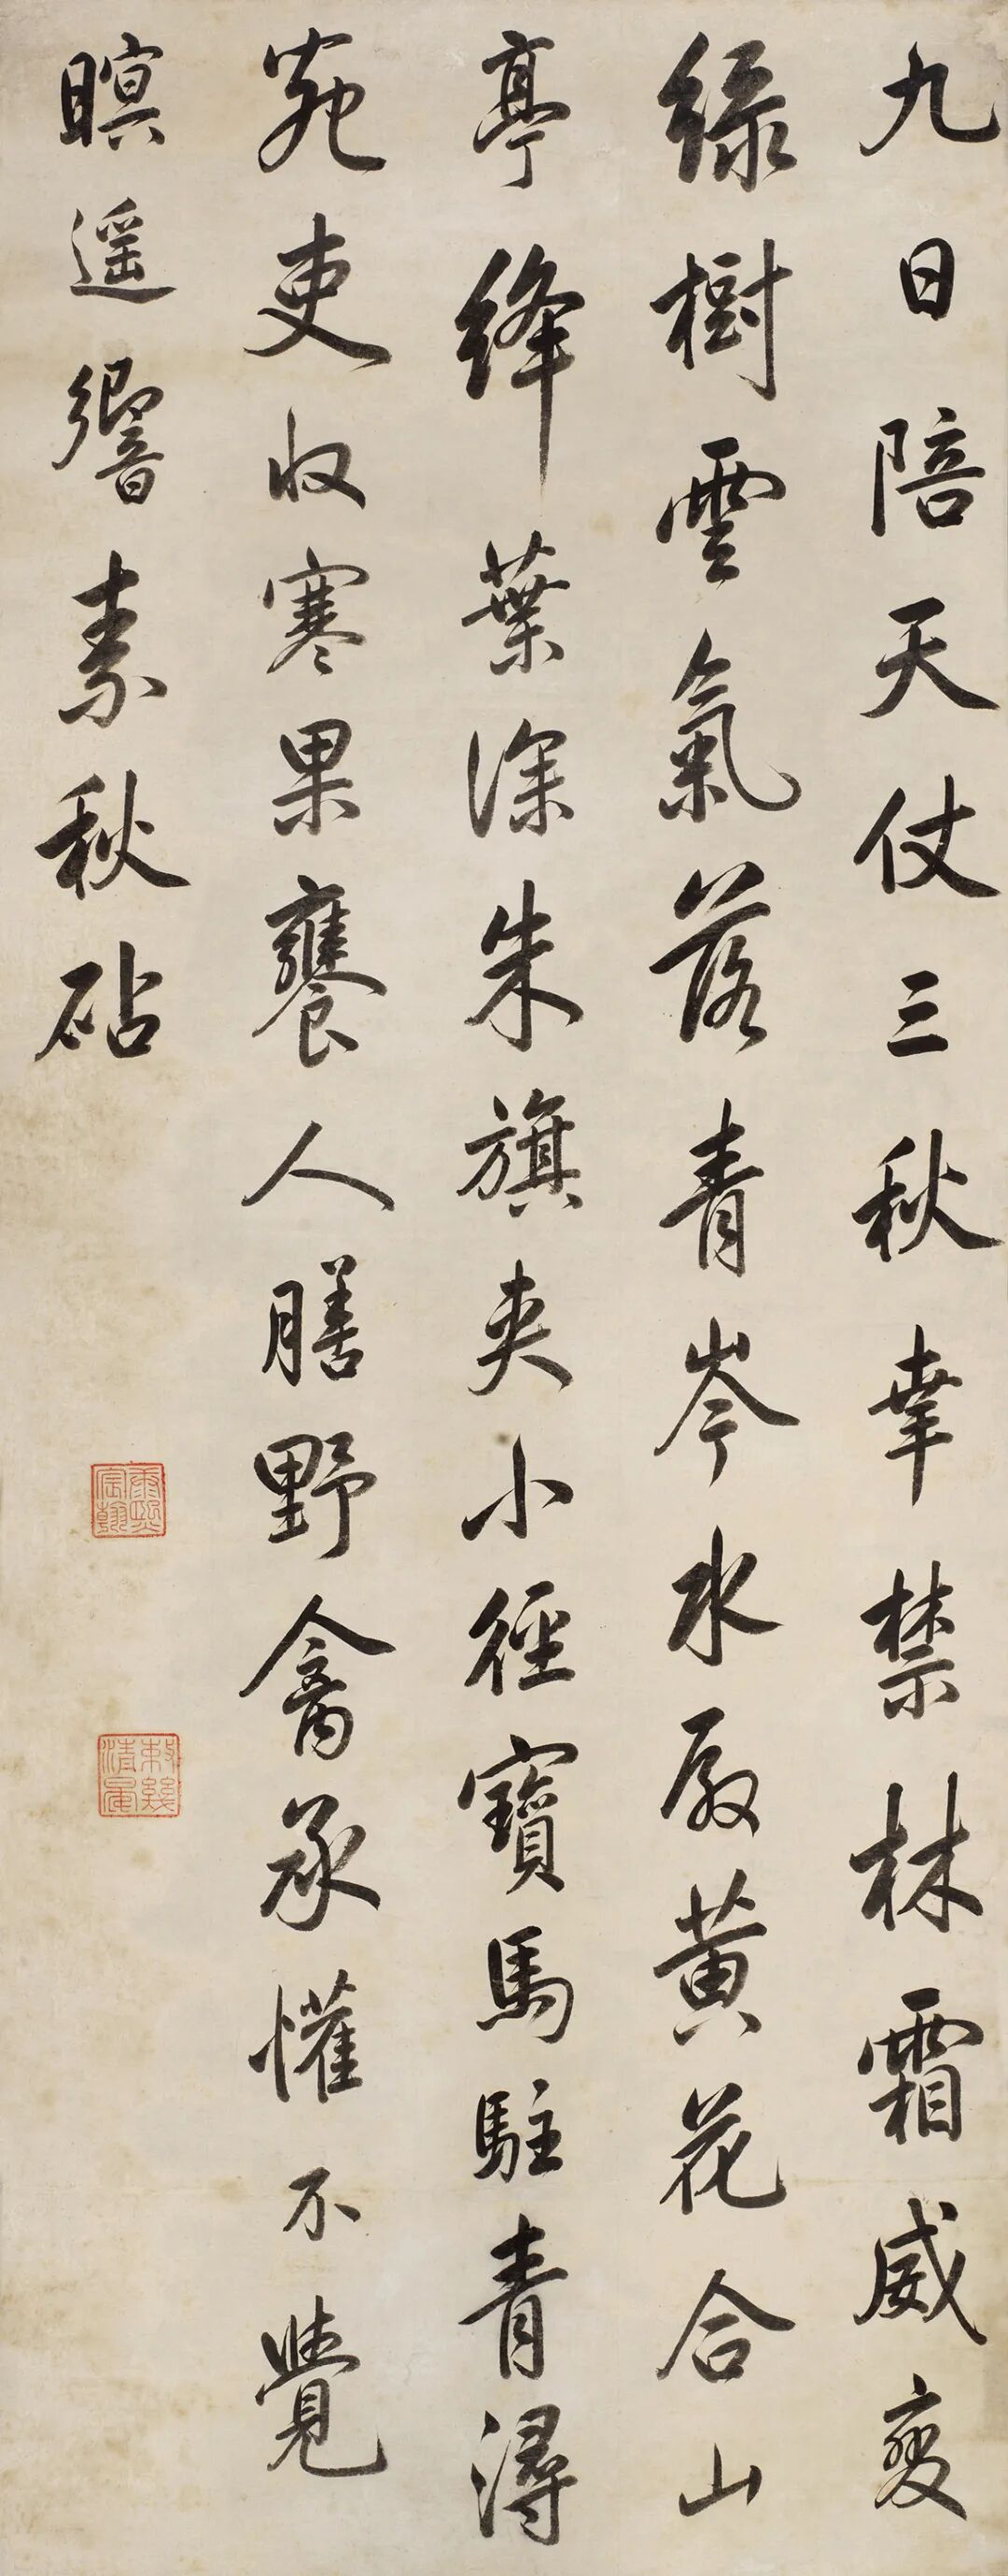 九日陪天仗三秋幸禁林霜威變
綠樹雲氣落青岑水殿黃花合山
亭絳葉深朱旗夾小徑寶馬駐青潯
宛吏收寒果饔人膳野禽承懽不覺
暝遥響素秋砧
康熙宸翰
敕幾清晏